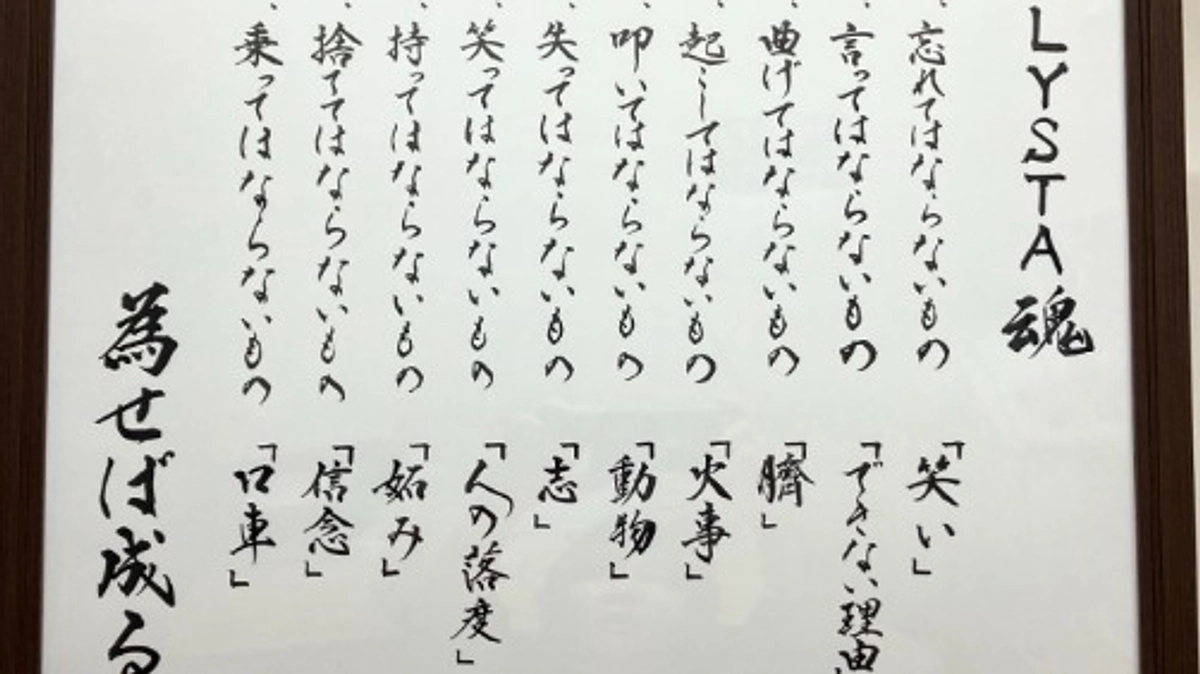 LYSTA魂
、忘れてはならないもの「笑い」
、言ってはならないもの「できない理由
、曲げてはならないもの「臍」
、起こしてはならないもの「火事」
、叩いてはならないもの「動物」
、失ってはならないもの「志」
、笑ってはならないもの「人の落度」
、持ってはならないもの「妬み」
、捨ててはならないもの「信念」
、乗ってはならないもの「口車」
為せば成る